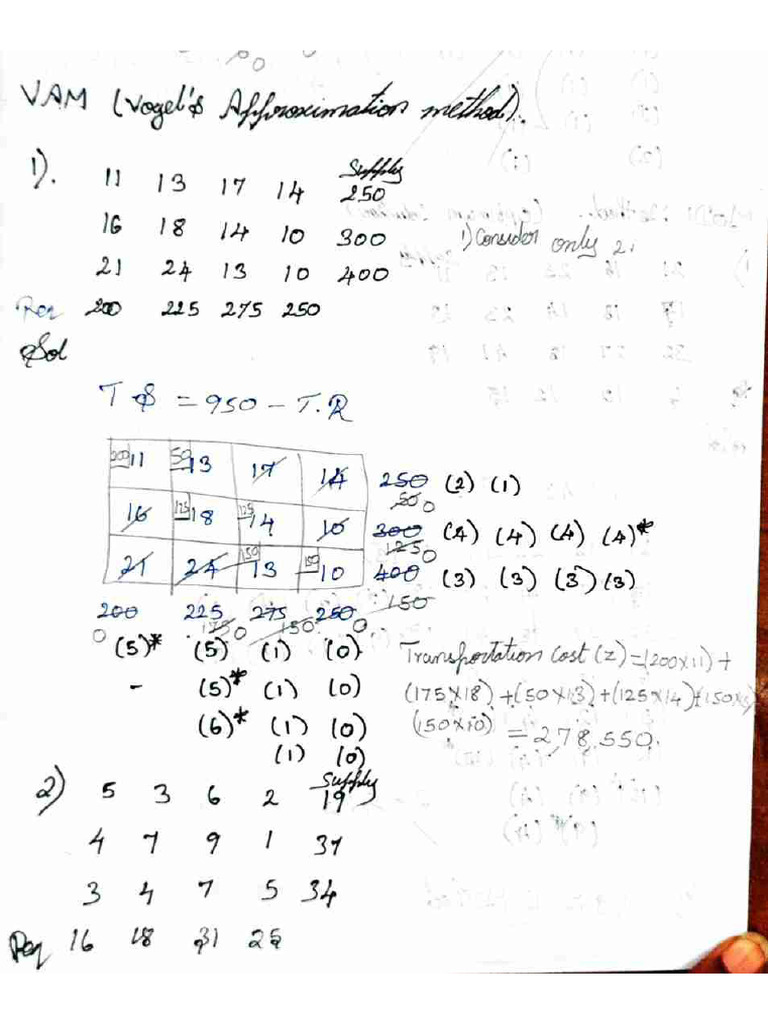 VAM (Vogel's Approximation method).
1). 11 13 17 14 Supply 250
16 18 14 10 300
1) Consider only 2.
21 24 13 10 400
Req 200 225 275 250
Sol
T S = 950 - T.R
200 11 50 13 17 14 250 50 0 (2) (1)
16 125 18 125 14 10 300 125 0 (4) (4) (4) (4)*
21 24 150 13 150 10 400 150 (3) (3) (3) (3)
200 225 275 250
0 175 0 150 0
(5)* (5) (1) (0)
- (5)* (1) (0)
(6)* (1) (0)
(1) (0)
Transportation Cost (Z) = (200x11) +
(175x18) + (50x13) + (125x14) + (150x
(150x10) = 2,78,550.
2) 5 3 6 2 Supply 19
4 7 9 1 37
3 4 7 5 34
Req 16 18 31 25